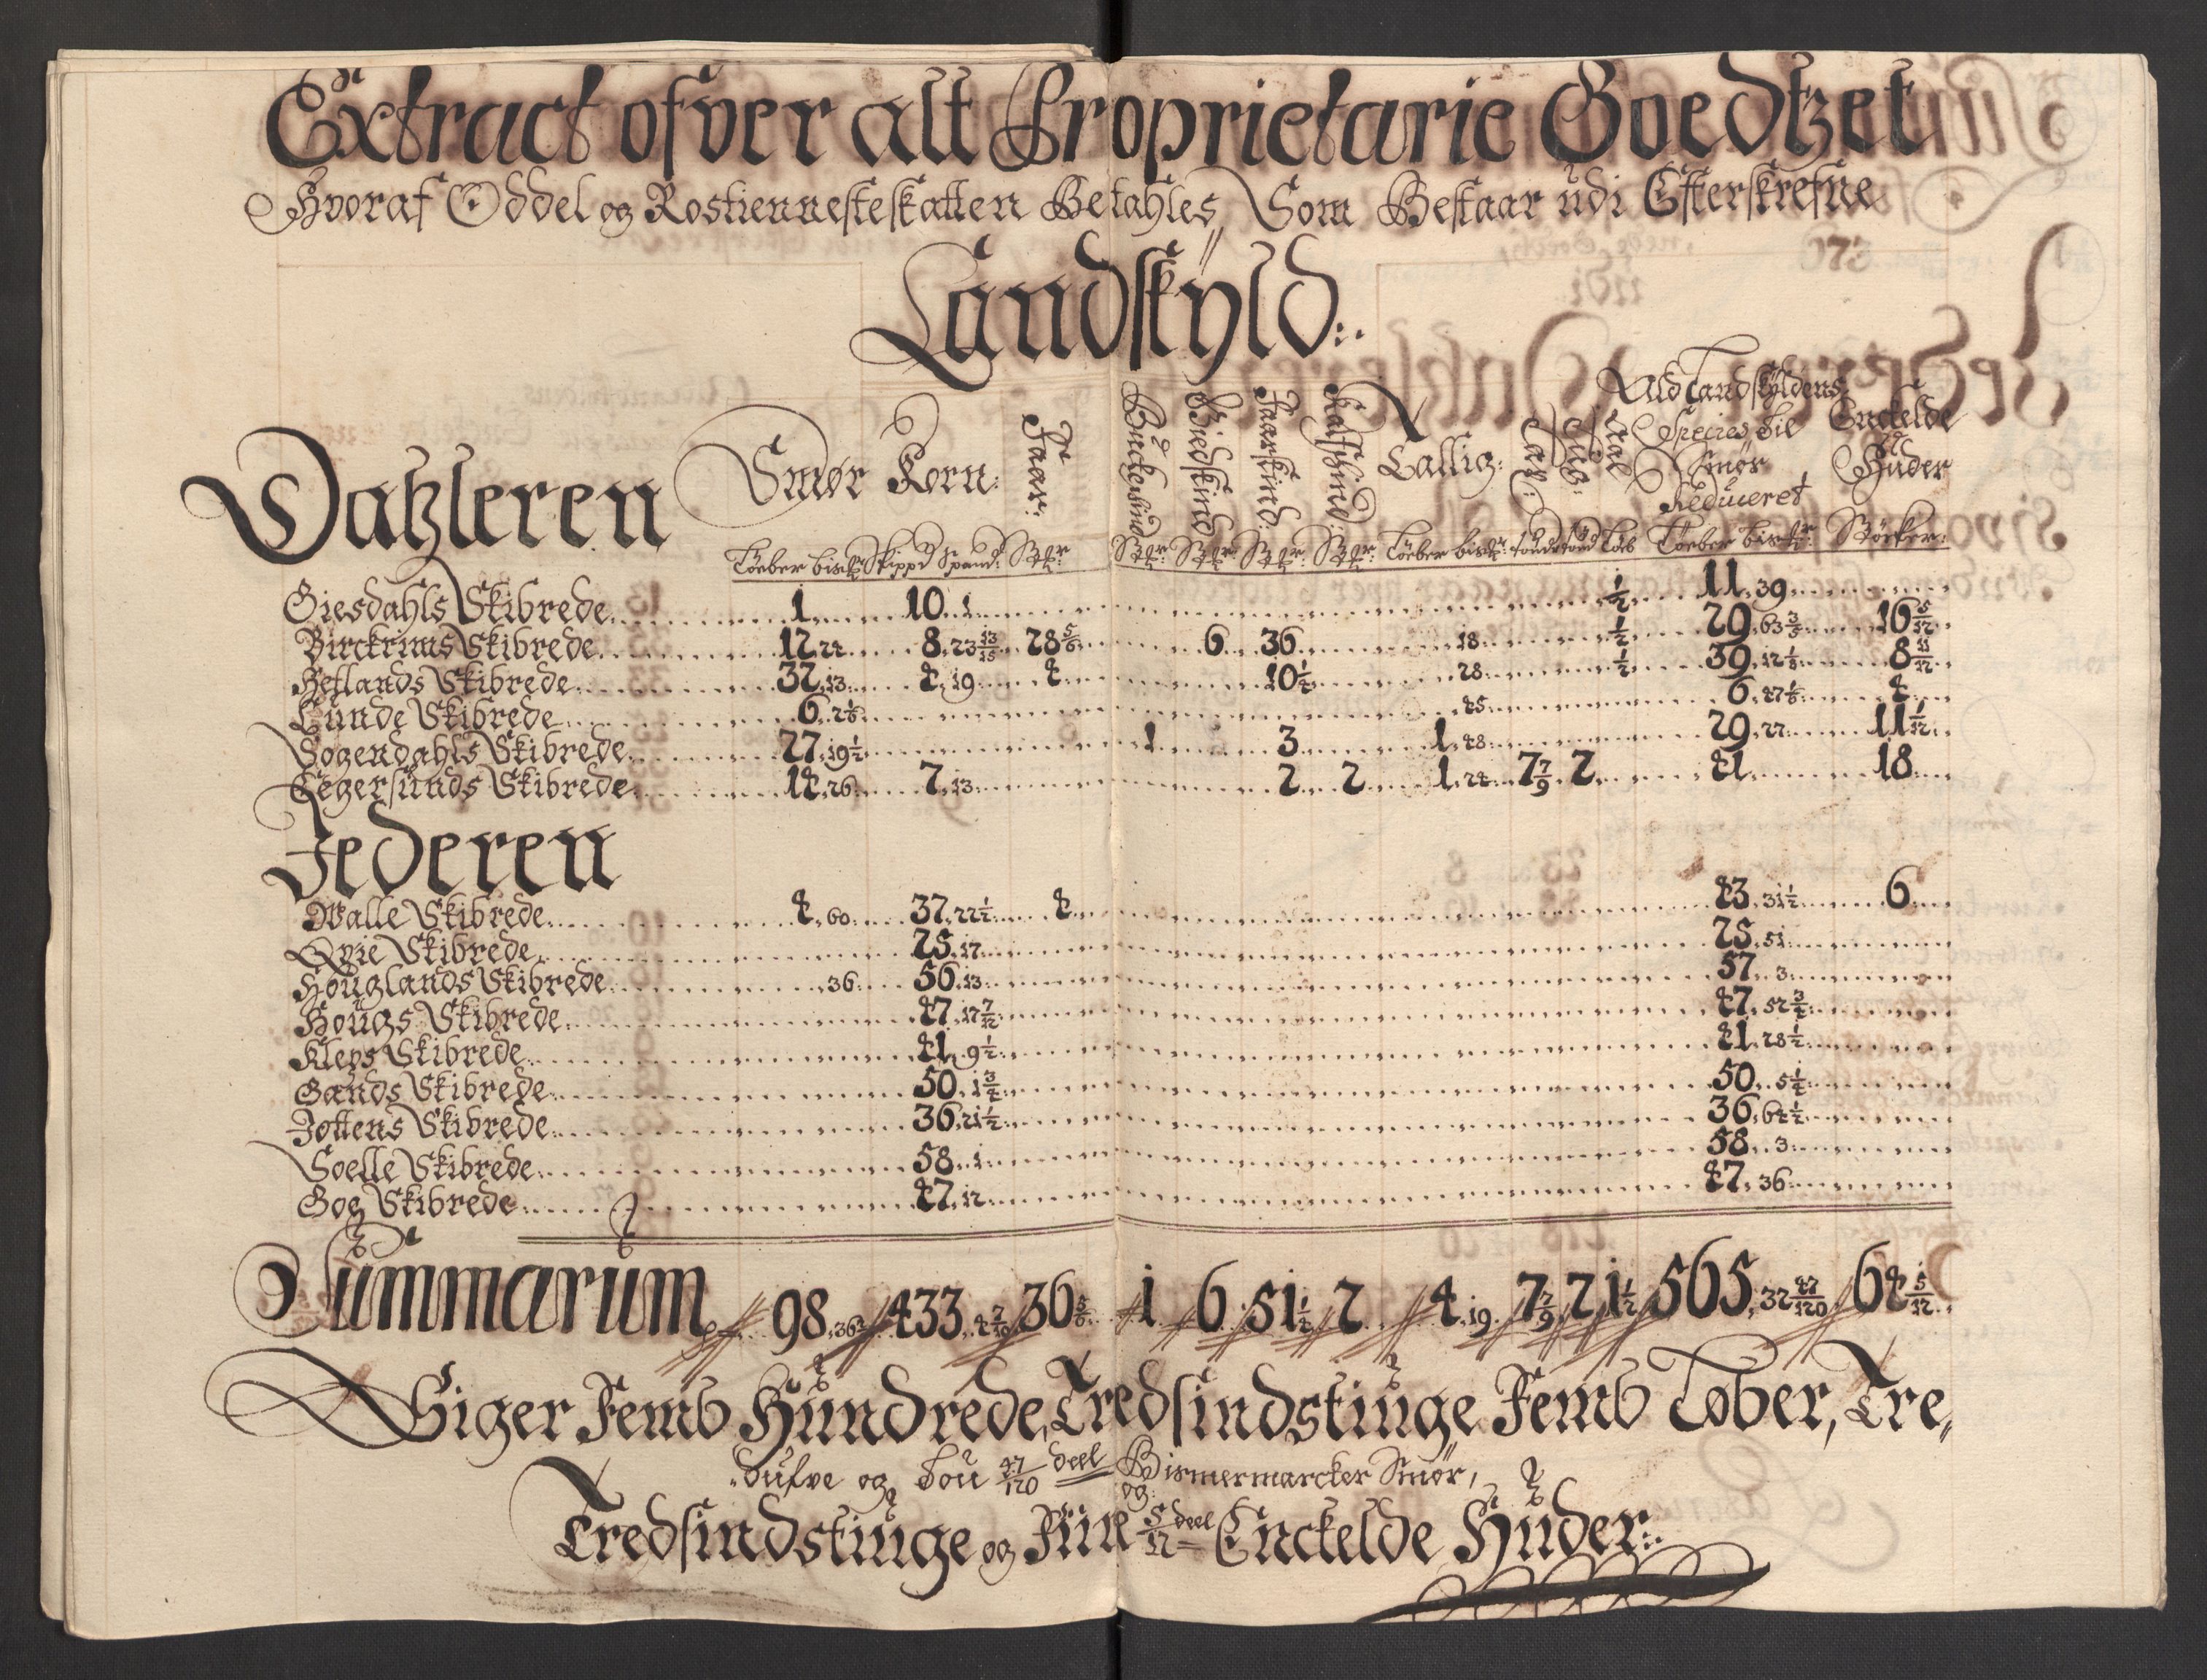 Extract ofver alt Proprietarie Goedtzet
Hvoraf Oddel og Rostienneste skatten Betahles, Som Bestaar udi Efterskrefne
Landskyld:.
Dahleren Smør Korn: Faar: Buckeskind Giedskind Faarskind: Kalfskind: Tallig: Lax: Aal Ald Landskyldens Species til Smør Reduceret Enckelde Huder
Løeber bismk Skippd Spand: Stkr: Stkr: Stkr: Stkr: Stkr: Løeber bismk: Løeb Løeber bismk: Støcker:
Giesdahls Skibrede 1 10. 1 1/2 11. 39
Birckrims Skibrede 12. 24 8. 23 13/15 28 5/6 6 36 18 1/2 29. 63 3/5 16 5/12
Hetlands Skibrede 32. 13 4. 19 4 10 1/2 28 1/2 39. 12 1/8 8 11/12
Lunde Skibrede 6. 2 1/6 45 6. 47 1/6 4
Sogendahls Skibrede 27. 19 1/2 1 3 1. 48 29. 22 11 1/12
Eegersunds Skibrede 14. 26 7. 13 2 2 1. 24 7 7/9 2 41 18
Jederen
Walle Skibrede 4. 60 37. 22 1/2 4 43. 31 1/2 6
Qvie Skibrede 25. 17 25. 51
Houglands Skibrede 36 56. 13 57. 3
Hougs Skibrede 47. 17 7/12 47. 52 3/4
Kleps Skibrede 41. 9 1/2 41. 28 1/2
Gands Skibrede 50. 1 3/4 50. 5 1/4
Jottens Skibrede 36. 21 1/2 36. 64 1/2
Soelle Skibrede 58. 1 58. 3
Gog Skibrede 47. 12 47. 36
Summarum 98. 36 2/3 433. 4 7/10 36 5/6 1 6 51 1/2 2 4. 19 7 7/9 2 1 1/2 565. 32 47/120 64 5/12
Siger Femb Hundrede, Tredsindstiuge Femb Løber, Tre,,
,,dufve og Tou 47/120 deel Bismermarcker Smør,
og
Tredsindstiuge og Fiire 5/12 deel Enckelde Huder:.